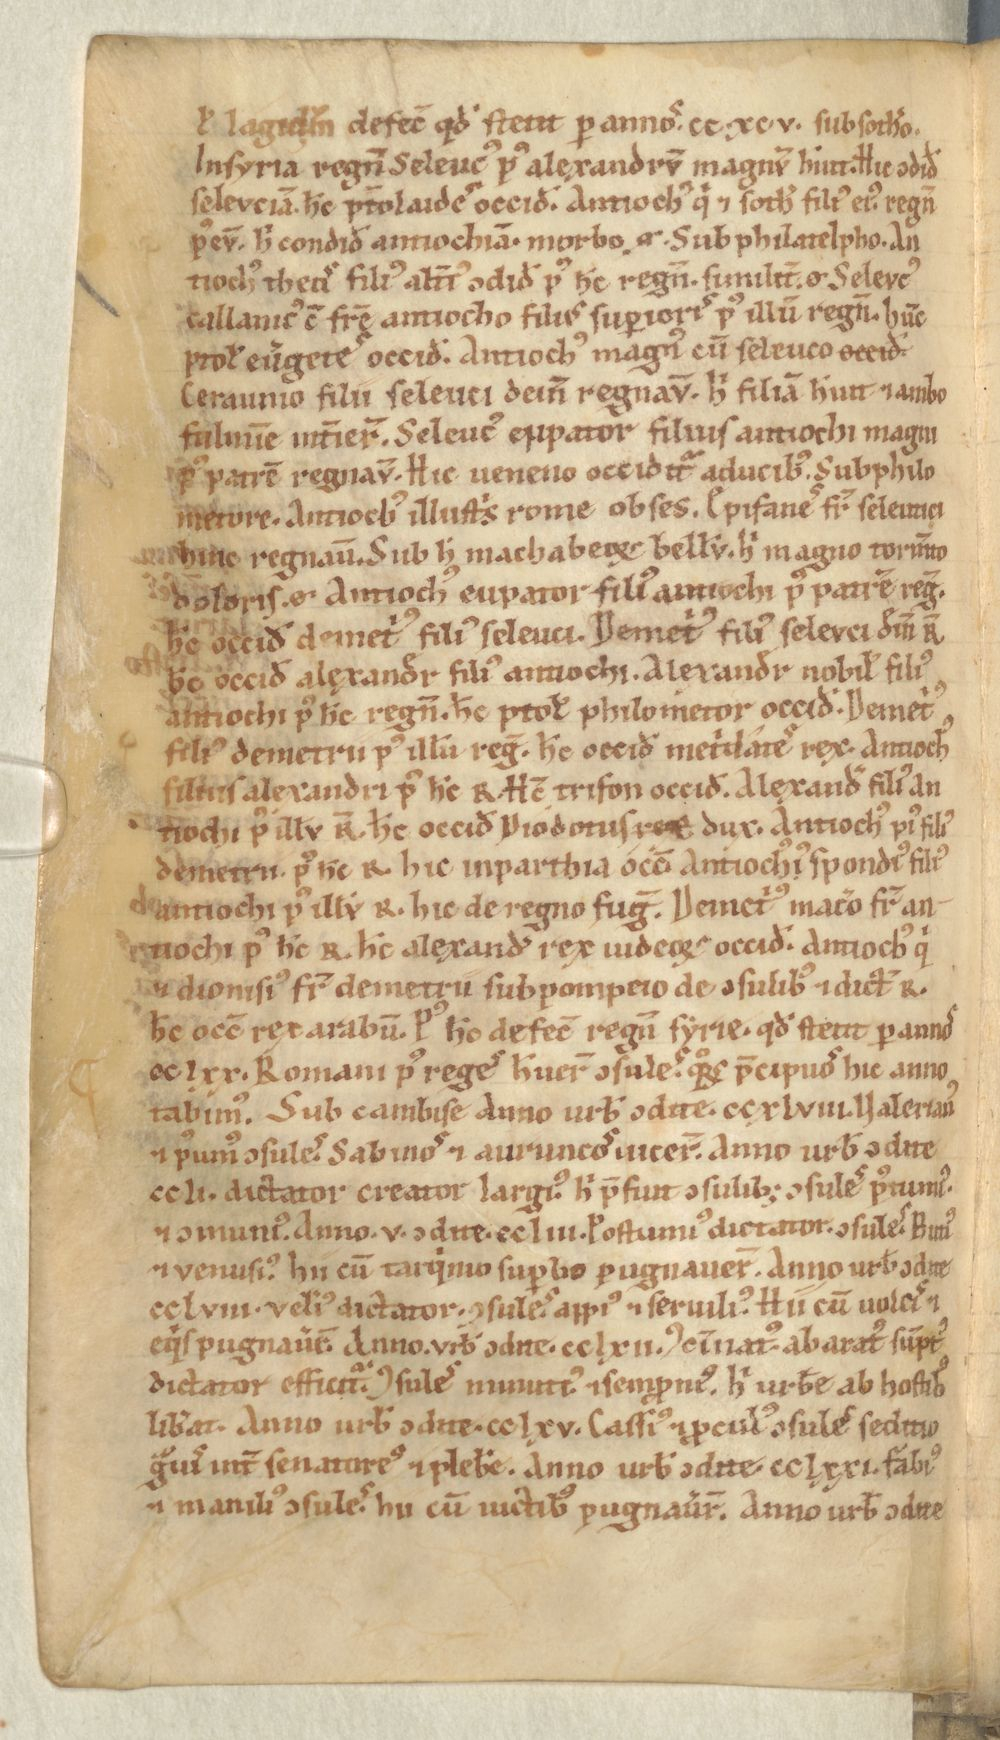 defec̄ qd̄ stetit p anno᷒. cc.xc.v. sub sothō.
In syria regn̄ Seleuc᷒ p᷒ alexandrv̄ magnv̄ hūit. Hic ꝯdid̄
selevciā. hc̄ ptolaide᷒ occid̄. Antioch᷒ q̇ ⁊ soth᷒ fili᷒ ei᷒. regn̄
p᷒ ev̄. h̄ condid̄ antiochiā. morbo. Sub philatelpho. An
tioch᷒ theo᷒ fili᷒ alt̄i᷒ ꝯdid̄ p᷒ hc̄ regn̄. similit̄. Selevc᷒
callanic᷒ c̄ fr̄e antiocho fili᷒ superiori᷒ p᷒ illū regn̄. hūc
ptol̄ eūgete᷒ occid̄. Antioch᷒ magn᷒ cū seleuco occid̄.
Ceraunio filii seleuci dein̄ regnav̄. h̄ filiā hūit ⁊ ambo
fulmīe int̄ier̄. Seleuc᷒ eupator filius antiochi magni
p᷒ patrē regnav̄. Hic ueneno occidit᷒ a ducib᷒. Sub philo
metore. Antioch᷒ illust̄s rome obses. Epifane᷒ fr̄ seleuci
hinc regnaū. Sub h̄ machabeoꝝ bellv̄. h̄ magno torm̄to
doloris. Antioch᷒ eupator fili᷒ antiochi p᷒ patrē reḡ.
hc̄ occid̄ demet̄᷒ fili᷒ seleuci. Demet̄᷒ fili᷒ selevci dīn ꝶ
hc̄ occid̄ alexandr̄ fili᷒ antiochi. Alexandr̄ nobil̄ fili᷒
antiochi p᷒ hc̄ regn̄. hc̄ ptol̄ philometor occid̄. Demet̄᷒
fili᷒ demetrii p᷒ illū reḡ. hc̄ occid̄ met̄date᷒ rex. Antioch᷒
filius alexandri p᷒ hc̄ ꝶ. Hc̄ trifon occid̄. Alexand̄ fili᷒ an
tiochi p᷒ illv̄ ꝶ. hc̄ occid̄ Diodotus rex dux. Antioch᷒ pi᷒ fili᷒
demetrii p᷒ hc̄ ꝶ. hic in parthia occ̄ Antioch᷒ spondi᷒ fili᷒
antiochi p᷒ illv̄ ꝶ. hic de regno fuḡ. Demet̄᷒ fr̄ an-
tiochi p᷒ hc̄ ꝶ. hc̄ alexand̄ rex iudeoꝝ occid̄. Antioch᷒ q̇
⁊ dionisi᷒ fr̄ demetrii sub pompeio de ꝯsulib᷒ ⁊ dict᷒ ꝶ.
hc̄ occ̄ rex arabū. P᷒ hc̄ defec̄ regn̄ syrie. qd̄ stetit p anno᷒
cc lxx. Romani p᷒ rege᷒ h̄uer̄ ꝯsule᷒. p̄cipuo᷒ hic anno
tabim᷒. Sub cambise Anno urb̄ ꝯdite. ccxlviii. Valerian᷒
⁊ ꝯsule᷒. Sabino᷒ ⁊ aurunco᷒ uicer̄. Anno urb̄ ꝯdite
cc li. dictator creator largi᷒. h̄ p̄fuit ꝯsulib; ꝯsule᷒ p᷒tumi᷒.
⁊ ꝯmuni᷒. Anno. v. ꝯdite. cc liii. Postumi᷒ dictator. ꝯsule᷒.
⁊ venusi᷒. hii cū tarq̇nio supbo pugnauer̄. Anno urb̄ ꝯdite
cc lviii. veli᷒ dictator. ꝯsule᷒ appi᷒ ⁊ seruili᷒. Hii cū uolci᷒ ⁊
eq̇s pugnaūr̄. Anno. vrb̄ ꝯdite. cc lxii. ꝯcīnat᷒ ab arat᷒ sūpt᷒
dictator efficit᷒. ꝯsule᷒ minuti᷒ ⁊ sempni᷒. h̄ urbē ab hostib᷒
lib̄at. Anno urb̄ ꝯdite. cc lxv. Cassi᷒ ⁊ pcul᷒ ꝯsule᷒ seditio
int̄ senatore᷒ ⁊ plebē. Anno urb̄ ꝯdite. cc lxxi. fabi᷒
⁊ manili᷒ ꝯsule᷒. hii cū uictib᷒ pugnaūr̄. Anno urb̄ ꝯdite